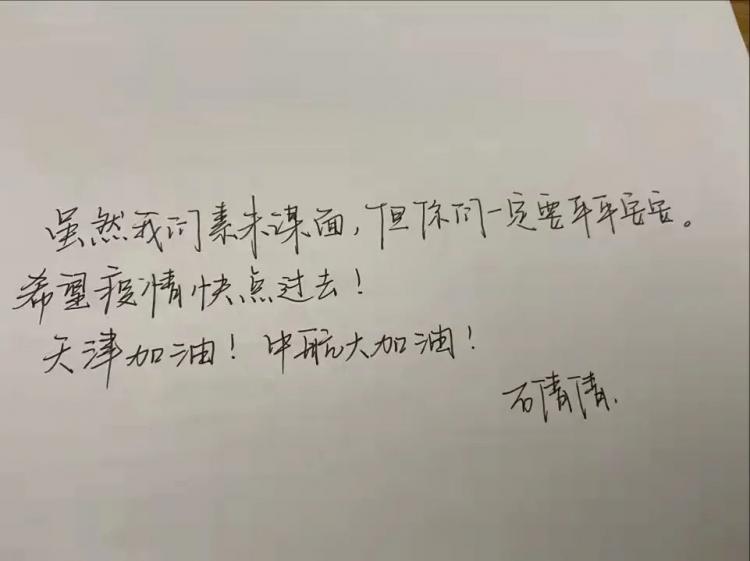 虽然我们素未谋面，但你们一定要平平安安。
希望疫情快点过去！
天津加油！中航大加油！
石倩倩.